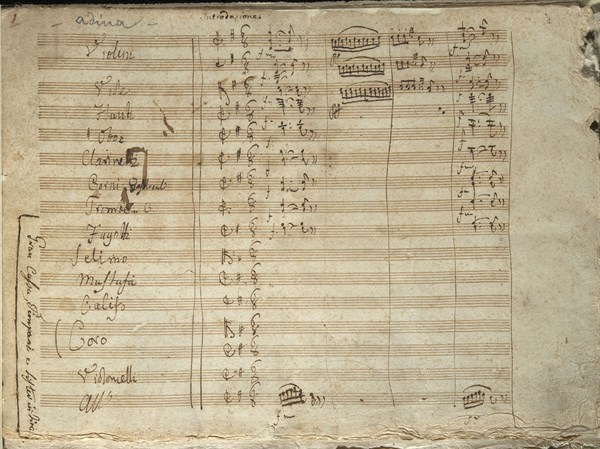 1
Adina
Introduzione
Violini
Viole
Flauti
Oboe
Clarinetti
Corni
Trombe
Fagotti
Selimo
Mustafà
Califo
Coro
Violoncelli
All.º
Gran Cassa Timpani e